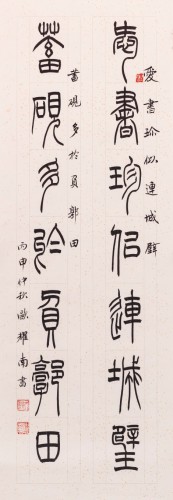 愛書珍似連城璧
愛書珍似連城璧
蓄硯多於負郭田
蓄硯多於負郭田
丙申仲秋 耀南書